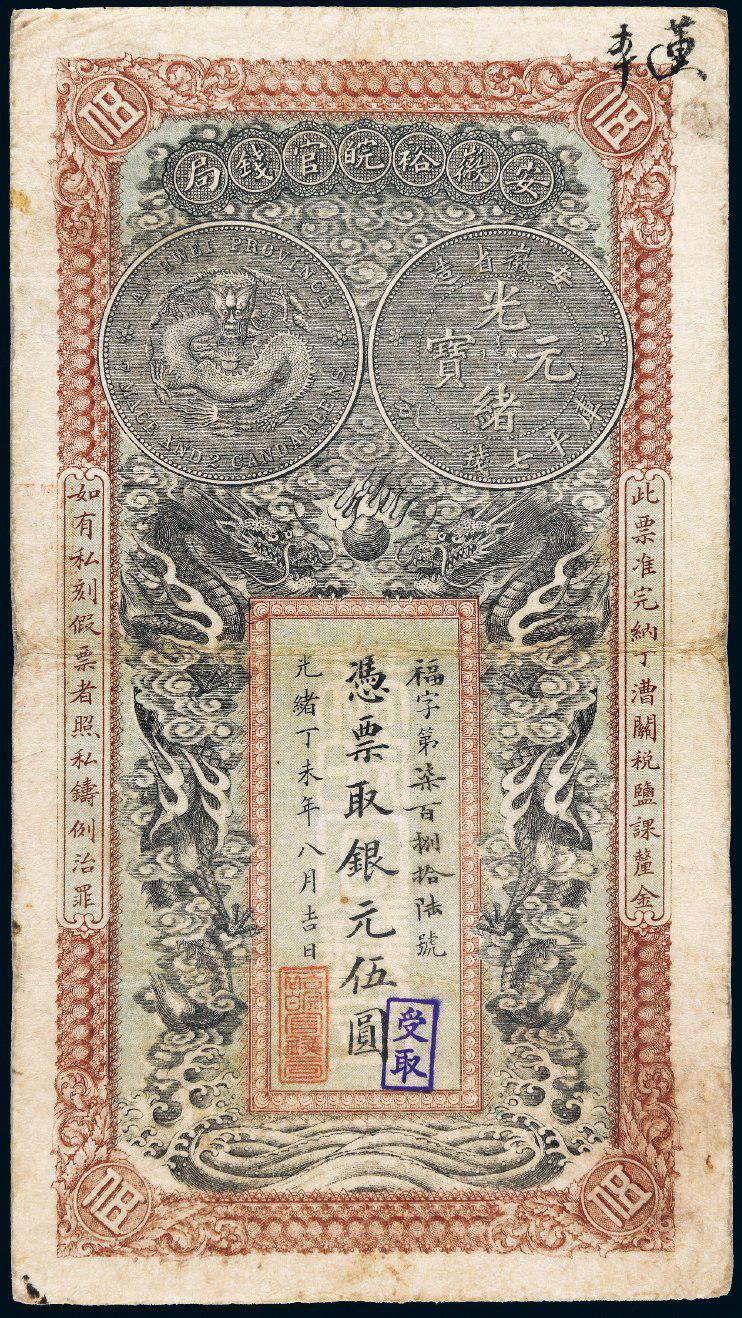 安徽裕皖官錢局
AN-HWEI PROVINCE
7 MACE AND 2 CANDAREENS
安徽省造
光緒元寶
庫平七錢二分
此票准完納丁漕關稅鹽課釐金
福字第柒百捌拾陸號
憑票取銀元伍圓
光緒丁未年八月吉日
如有私刻假票者照私鑄例治罪
受取